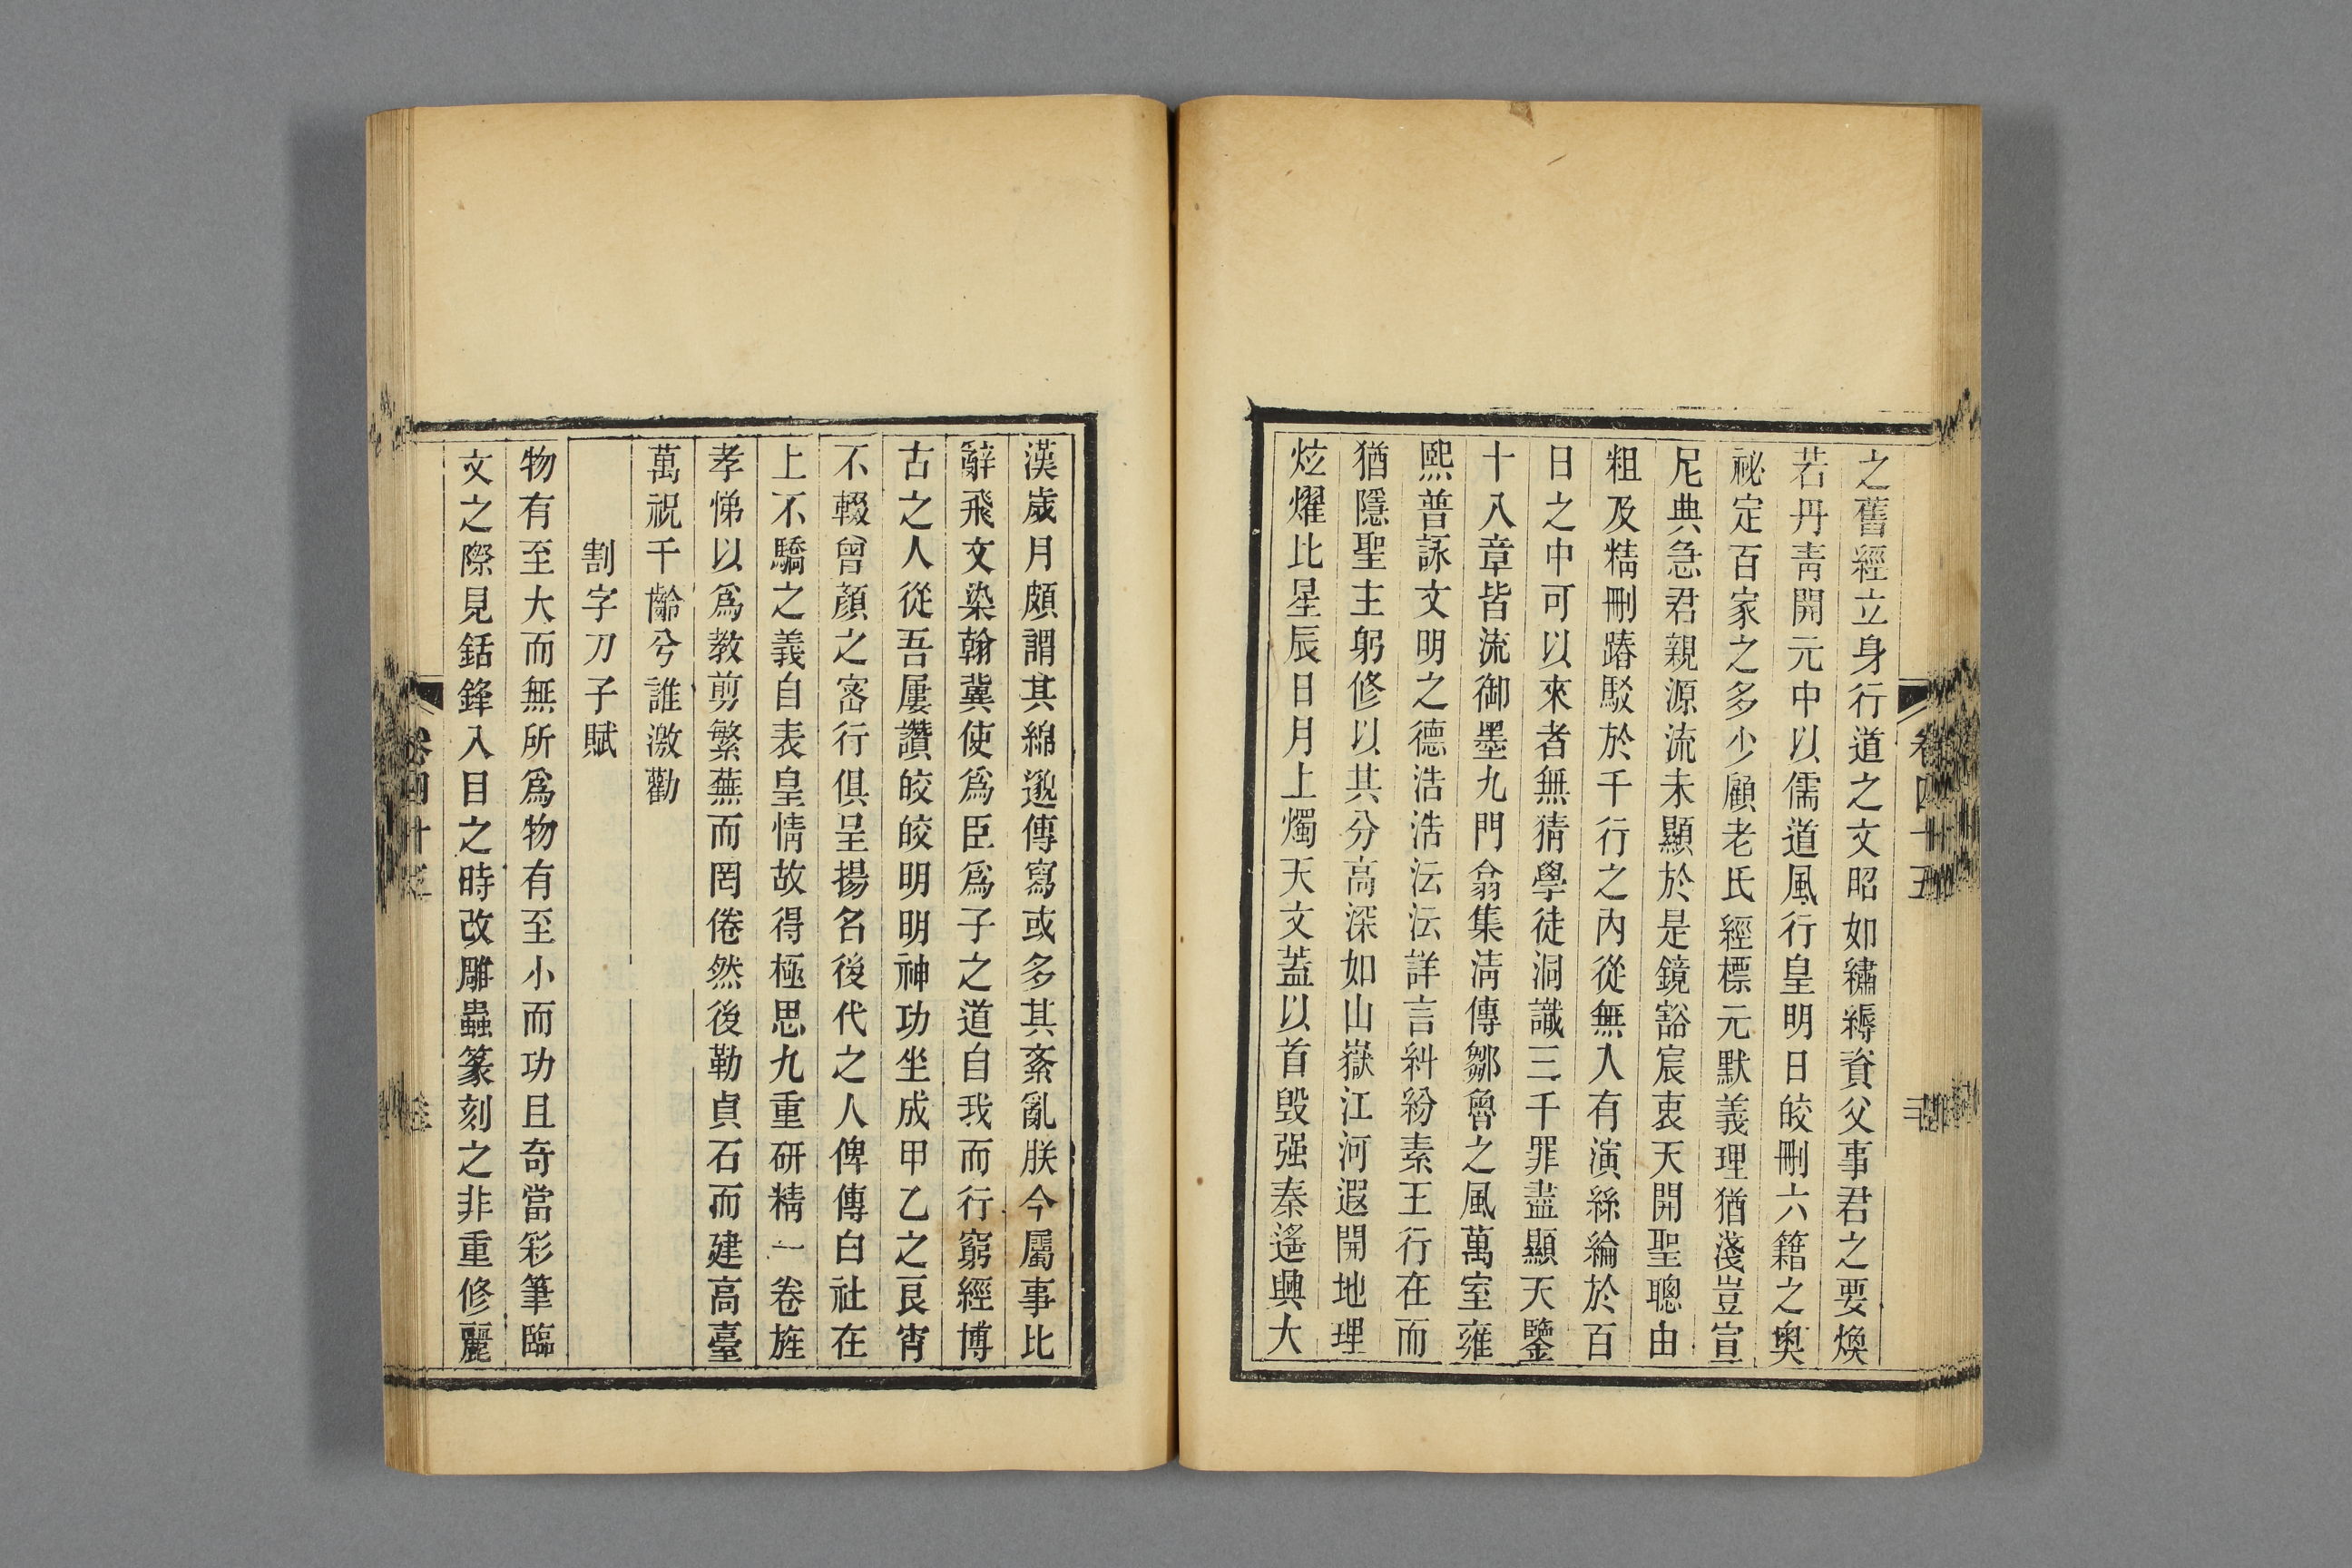 之舊經立身行道之文昭如繡縟資父事君之要煥
若丹靑開元中以儒道風行皇明日皎刪六籍之奥
祕定百家之多少顧老氏經標元默義理猶淺豈宣
尼典急君親源流未顯於是鏡豁宸衷天開聖聰由
粗及精刪踳駁於千行之內從無入有演絲綸於百
日之中可以來者無猜學徒洞識三千罪盡顯天鑒
十八章皆流御墨九門翕集淸傳鄒魯之風萬室雍
熙普詠文明之德浩浩沄沄詳言糾紛素王行在而
猶隱聖主躬修以其分高深如山嶽江河遐開地理
炫燿比星辰日月上燭天文葢以首毀强秦遙興大
卷四十五
漢歲月頗謂其綿邈傳寫或多其紊亂朕今屬事比
辭飛文染翰冀使爲臣爲子之道自我而行窮經博
古之人從吾屢讚皎皎明明神功坐成甲乙之良宵
不輟曾顏之宻行俱呈揚名後代之人俾傳白社在
上不驕之義自表皇情故得極思九重硏精一卷旌
孝悌以爲教剪繁蕪而罔倦然後勒貞石而建高臺
萬祝千齡兮誰激勸
割字刀子賦
物有至大而無所爲物有至小而功且奇當彩筆臨
文之際見銛鋒入目之時改雕蟲篆刻之非重修麗
卷四十五